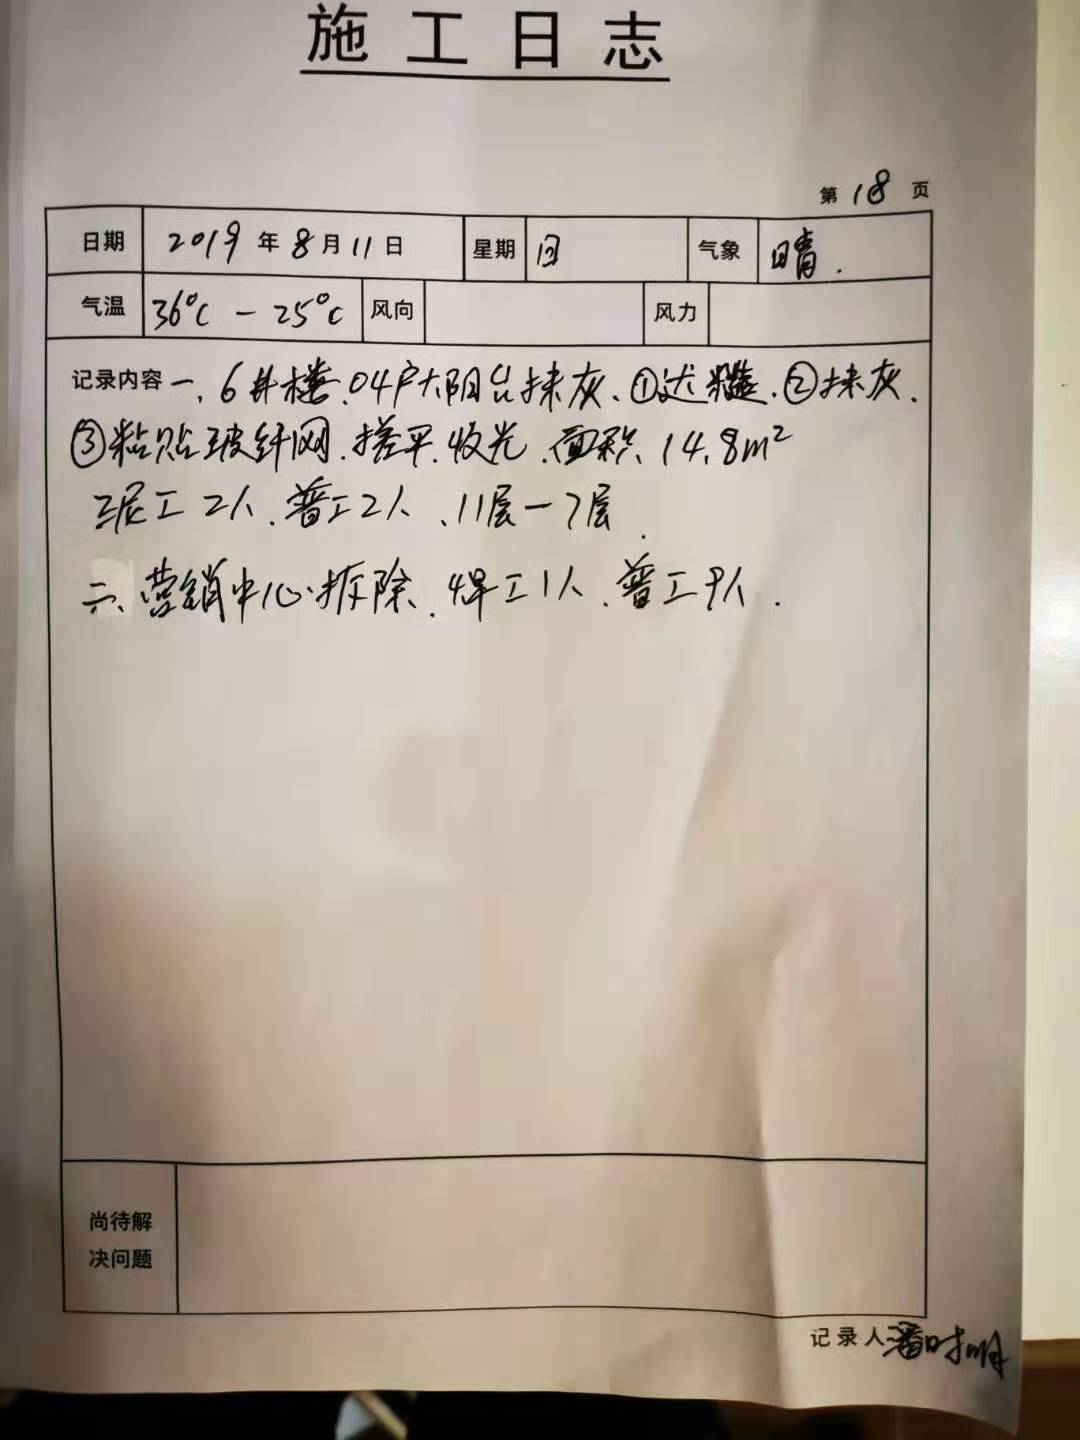 施工日志
第 18 页
日期 2019 年 8 月 11 日 星期 日 气象 晴.
气温 36℃ - 25℃ 风向 风力
记录内容 一、6#楼、04户大阳台抹灰、①达糙、②抹灰、
③粘贴玻纤网、搓平、收光、面积、14.8m²
泥工2人、普工2人、11层-7层.
二、营销中心拆除、焊工1人、普工9人.
尚待解
决问题
记录人 潘时明